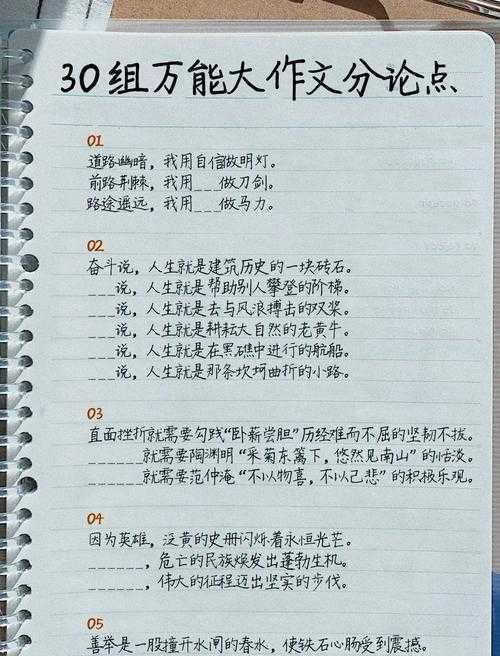 30组万能大作文分论点
01
道路幽暗，我用自信做明灯。
前路荆棘，我用___做刀剑。
路途遥远，我用___做马力。
02
奋斗说，人生就是建筑历史的一块砖石。
___说，人生就是帮助别人攀登的阶梯。
___说，人生就是去与风浪搏击的双桨。
___说，人生就是耕耘大自然的老黄牛。
___说，人生就是在黑礁中进行的航船。
___说，人生就是那条坎坷曲折的小路。
03
直面挫折就需要勾践“卧薪尝胆”历经难而不屈的坚韧不拔。
______就需要陶渊明“采菊东篱下，悠然见南山”的恬淡。
______就需要范仲淹“不以物喜，不以己悲”的积极乐观。
04
因为英雄，泛黄的史册闪烁着永恒光芒。
______，危亡的民族焕发出蓬勃生机。
______，伟大的征程迈出坚实的步伐。
05
善举是一股撞开水闸的春水，使铁石心肠受到震撼。